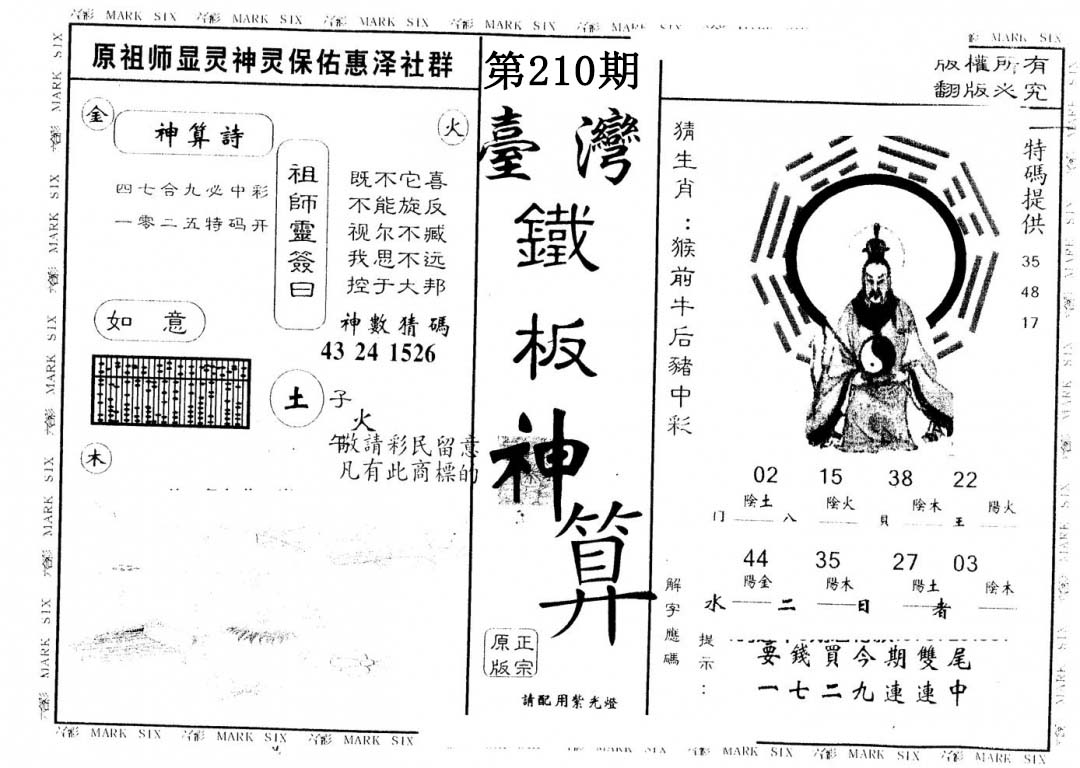 MARK SIX MARK SIX MARK SIX MARK SIX
原祖师显灵神灵保佑惠泽社群
金
神算詩
火
四七合九必中彩
一零二五特码开
祖師靈簽曰
既不它喜
不能旋反
视尔不臧
我思不远
控于大邦
如意
神數猜碼
43 24 1526
土
子
火
午
敬請彩民留意
凡有此商標的
木
第210期
臺灣
鐵
板
神
算
正宗
原版
請配用紫光燈
版權所有
翻版必究
猜生肖：猴前牛后豬中彩
特碼提供
35
48
17
02 15 38 22
陰土 陰火 陰木 陽火
门 八 貝 王
44 35 27 03
陽金 陽木 陽土 陰木
水 二 日 者
解字應碼
提示：
要錢買今期雙尾
一七二九連連中
MARK SIX MARK SIX MARK SIX MARK SIX MARK SIX MARK SIX